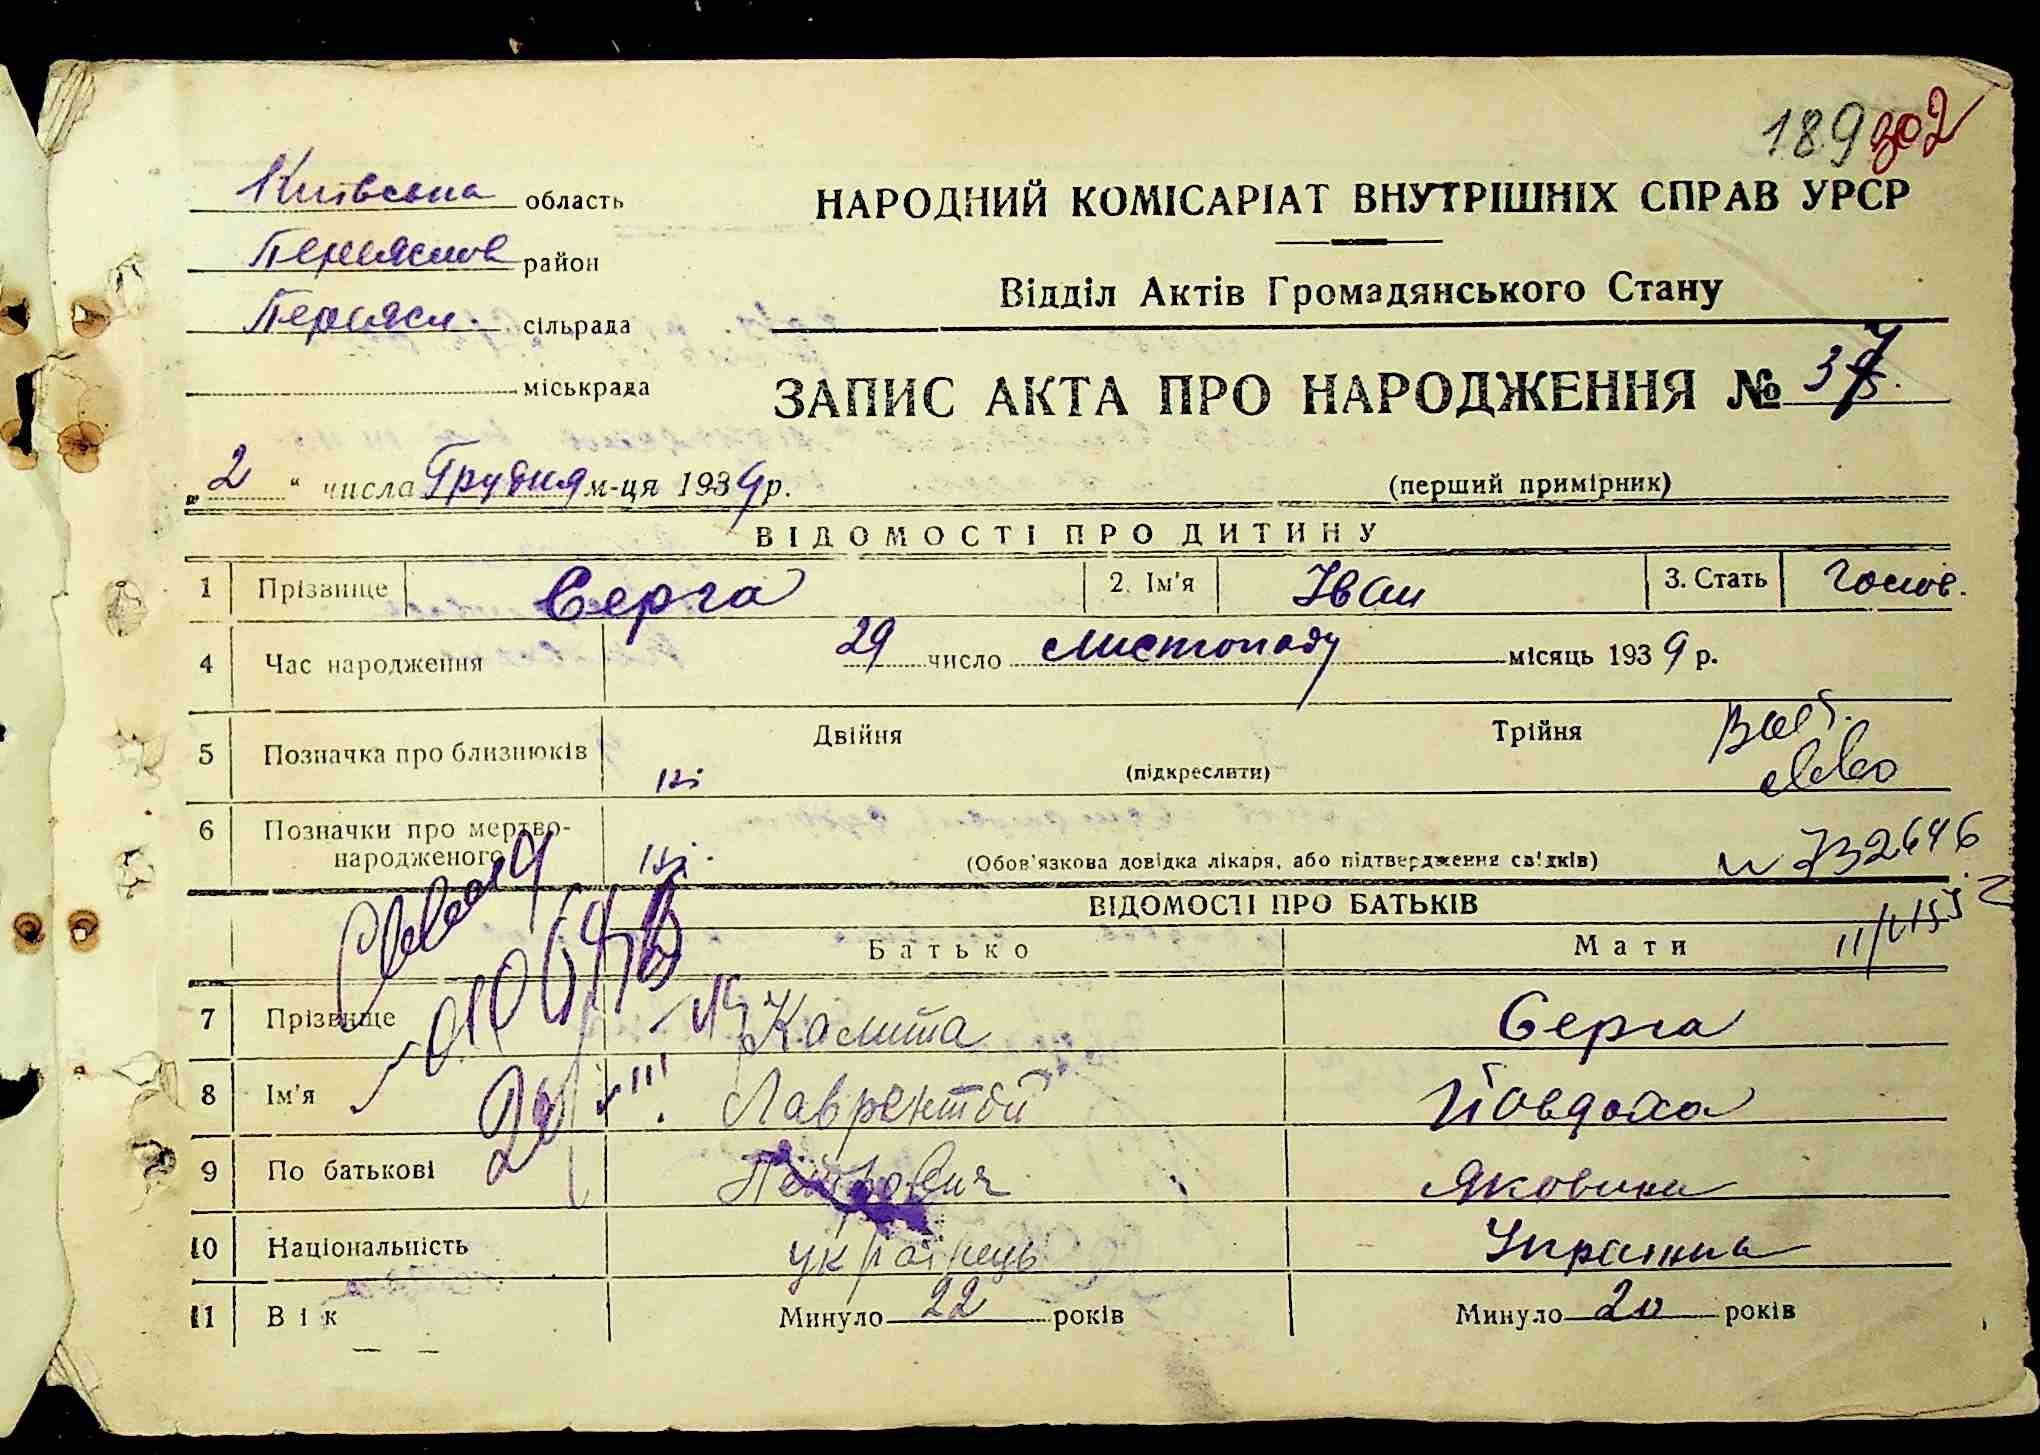 189 302
Київська область
НАРОДНИЙ КОМІСАРІАТ ВНУТРІШНІХ СПРАВ УРСР
Переяслов район
Відділ Актів Громадянського Стану
Переясл. сільрада
міськрада
ЗАПИС АКТА ПРО НАРОДЖЕННЯ № 37
„2“ числа Грудня м-ця 1939 р.
(перший примірник)
ВІДОМОСТІ ПРО ДИТИНУ
1 Прізвище Серга 2. Ім'я Іван 3. Стать Голов.
4 Час народження 29 число листопаду місяць 1939 р.
5 Позначка про близнюків ні Двійня (підкреслити) Трійня
6 Позначки про мертво-
народженого ні. (Обов'язкова довідка лікаря, або підтвердження свідків)
732646
ВІДОМОСТІ ПРО БАТЬКІВ
Батько Мати
7 Прізвище Калита Серга
8 Ім'я Лаврентій Йовдоха
9 По батькові Петрович Яковина
10 Національність українець Українка
11 Вік Минуло 22 років Минуло 20 років